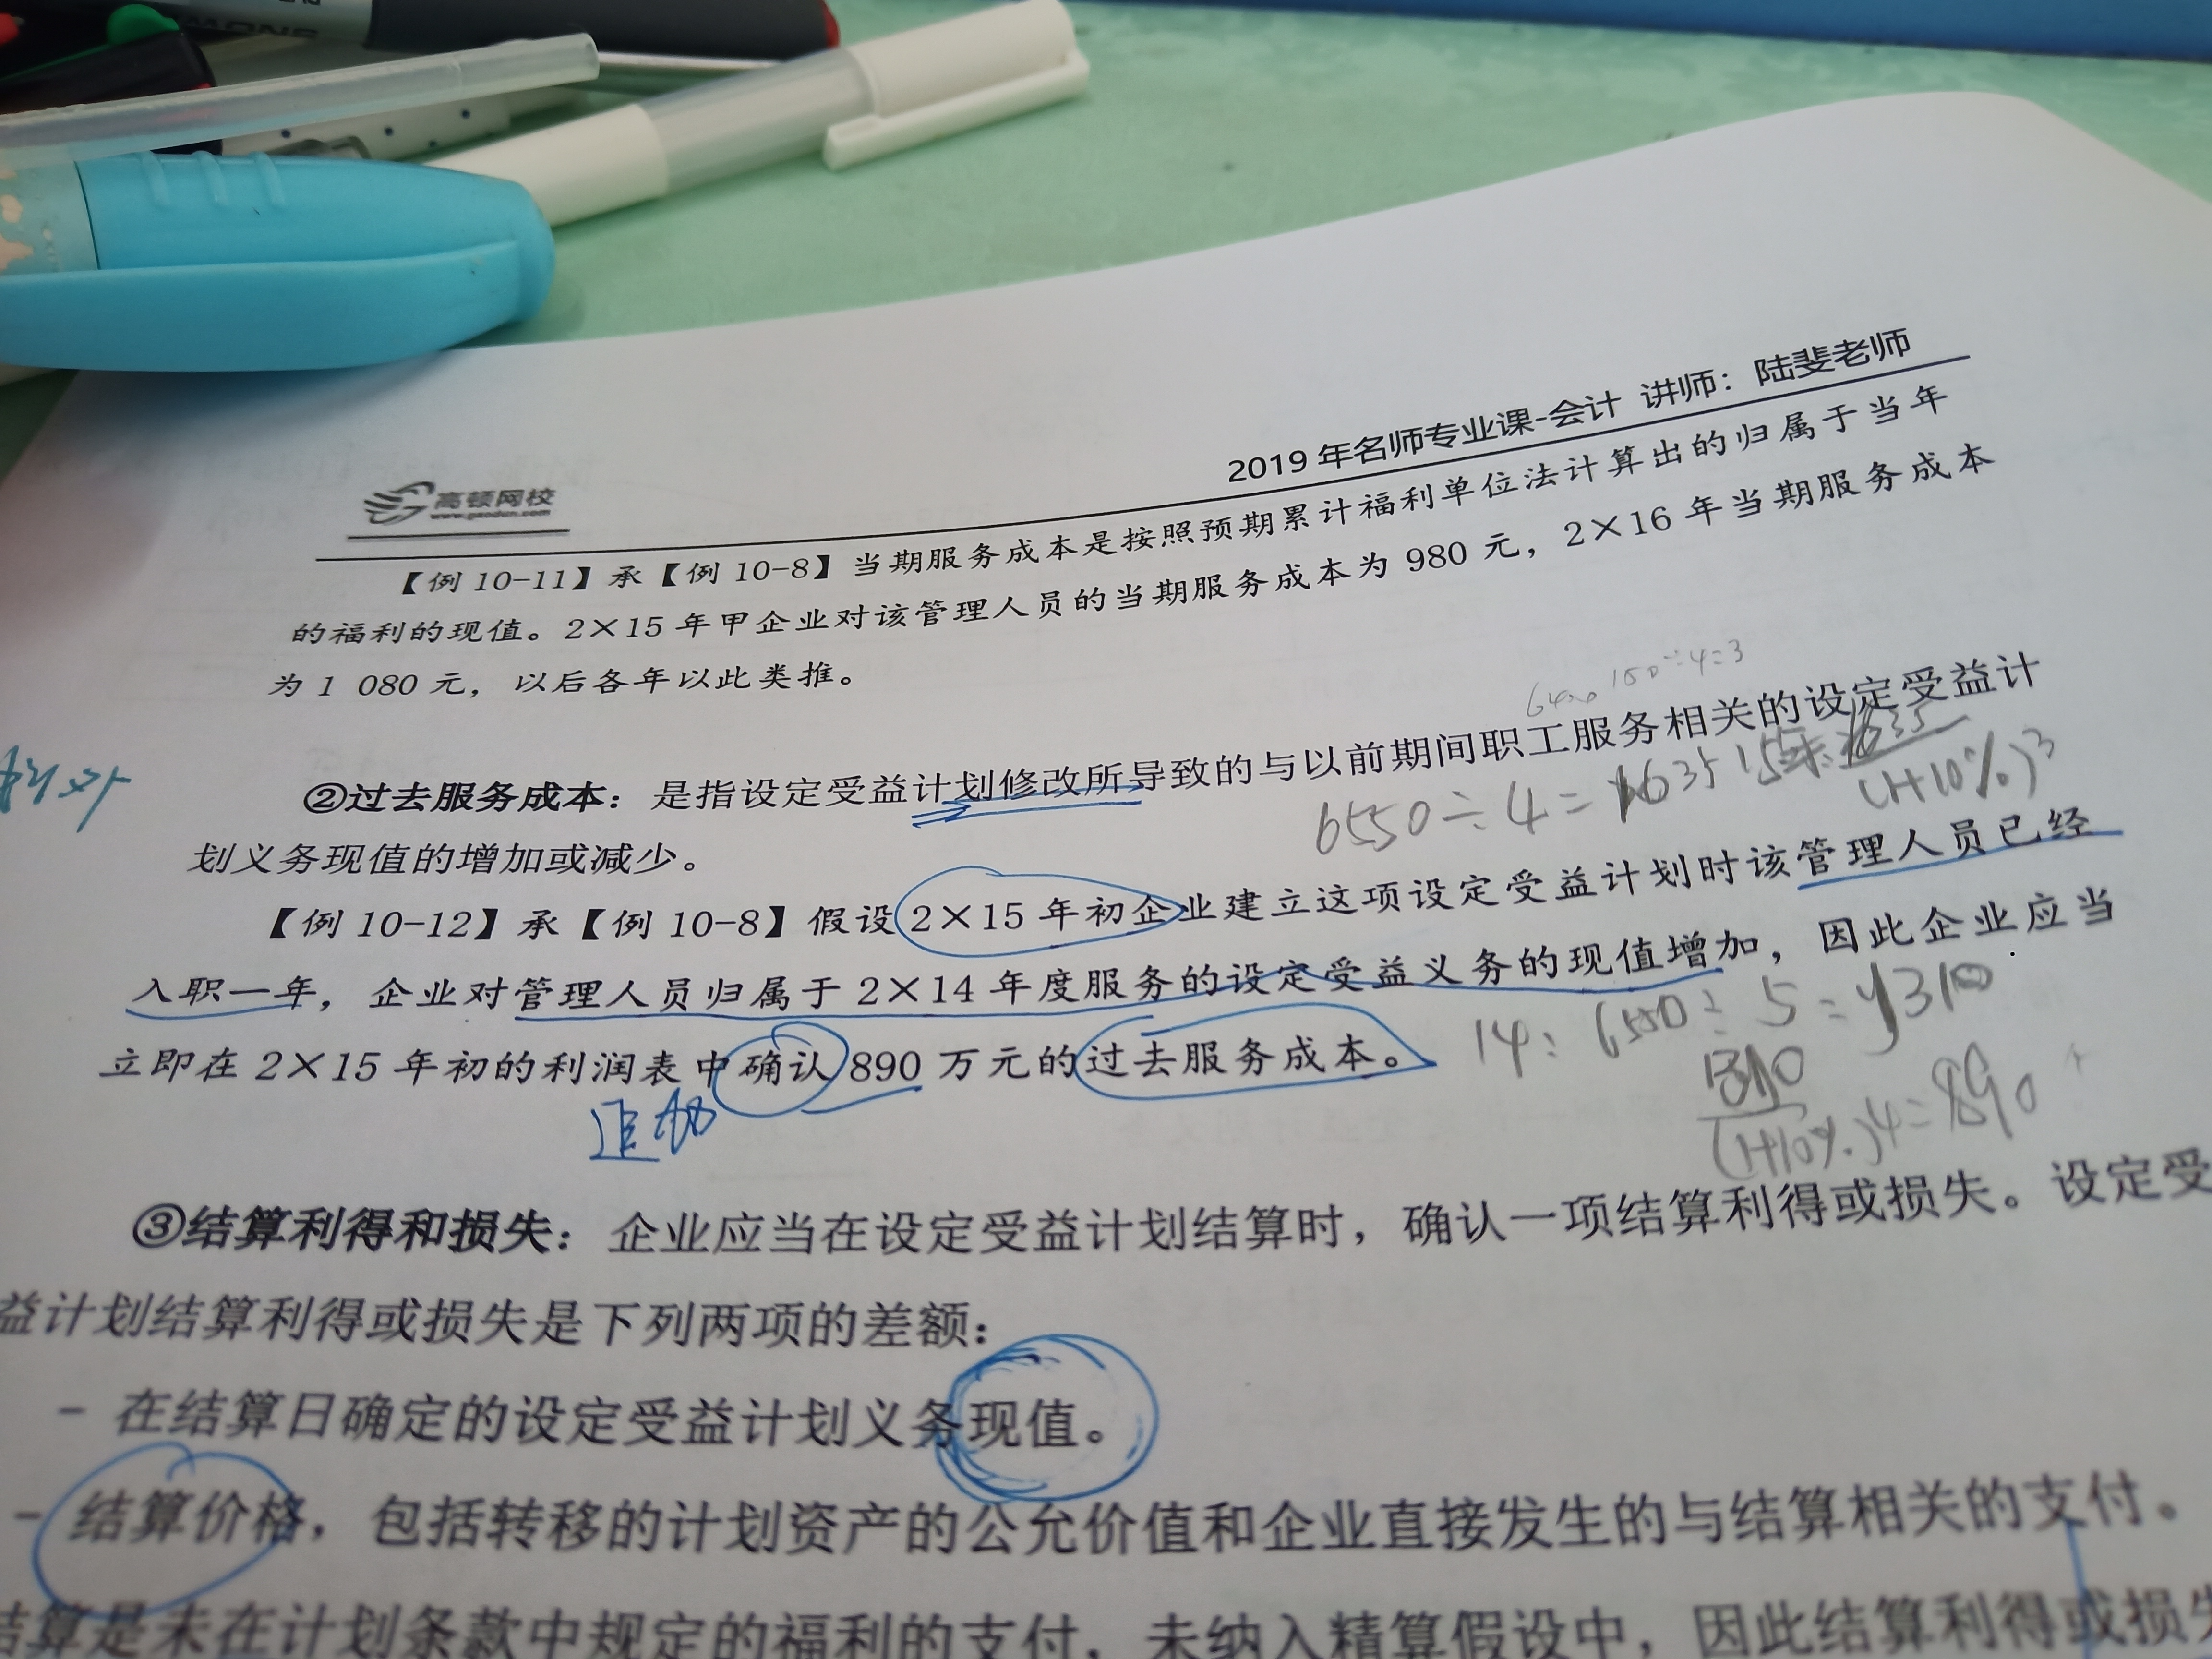 2019 年名师专业课-会计 讲师：陆斐老师
高顿网校
www.gaodun.com
【例 10-11】承【例 10-8】当期服务成本是按照预期累计福利单位法计算出的归属于当年
的福利的现值。2×15 年甲企业对该管理人员的当期服务成本为 980 元，2×16 年当期服务成本
为 1 080 元，以后各年以此类推。
②过去服务成本：是指设定受益计划修改所导致的与以前期间职工服务相关的设定受益计
划义务现值的增加或减少。
6550÷4=
(1+10%)3
【例 10-12】承【例 10-8】假设 2×15 年初企业建立这项设定受益计划时该管理人员已经
入职一年，企业对管理人员归属于 2×14 年度服务的设定受益义务的现值增加，因此企业应当
立即在 2×15 年初的利润表中确认 890 万元的过去服务成本。
追加
14: 6550÷5=1310
1310
(1+10%)4=890
③结算利得和损失：企业应当在设定受益计划结算时，确认一项结算利得或损失。设定受
益计划结算利得或损失是下列两项的差额：
- 在结算日确定的设定受益计划义务现值。
- 结算价格，包括转移的计划资产的公允价值和企业直接发生的与结算相关的支付。
结算是未在计划条款中规定的福利的支付，未纳入精算假设中，因此结算利得或损失